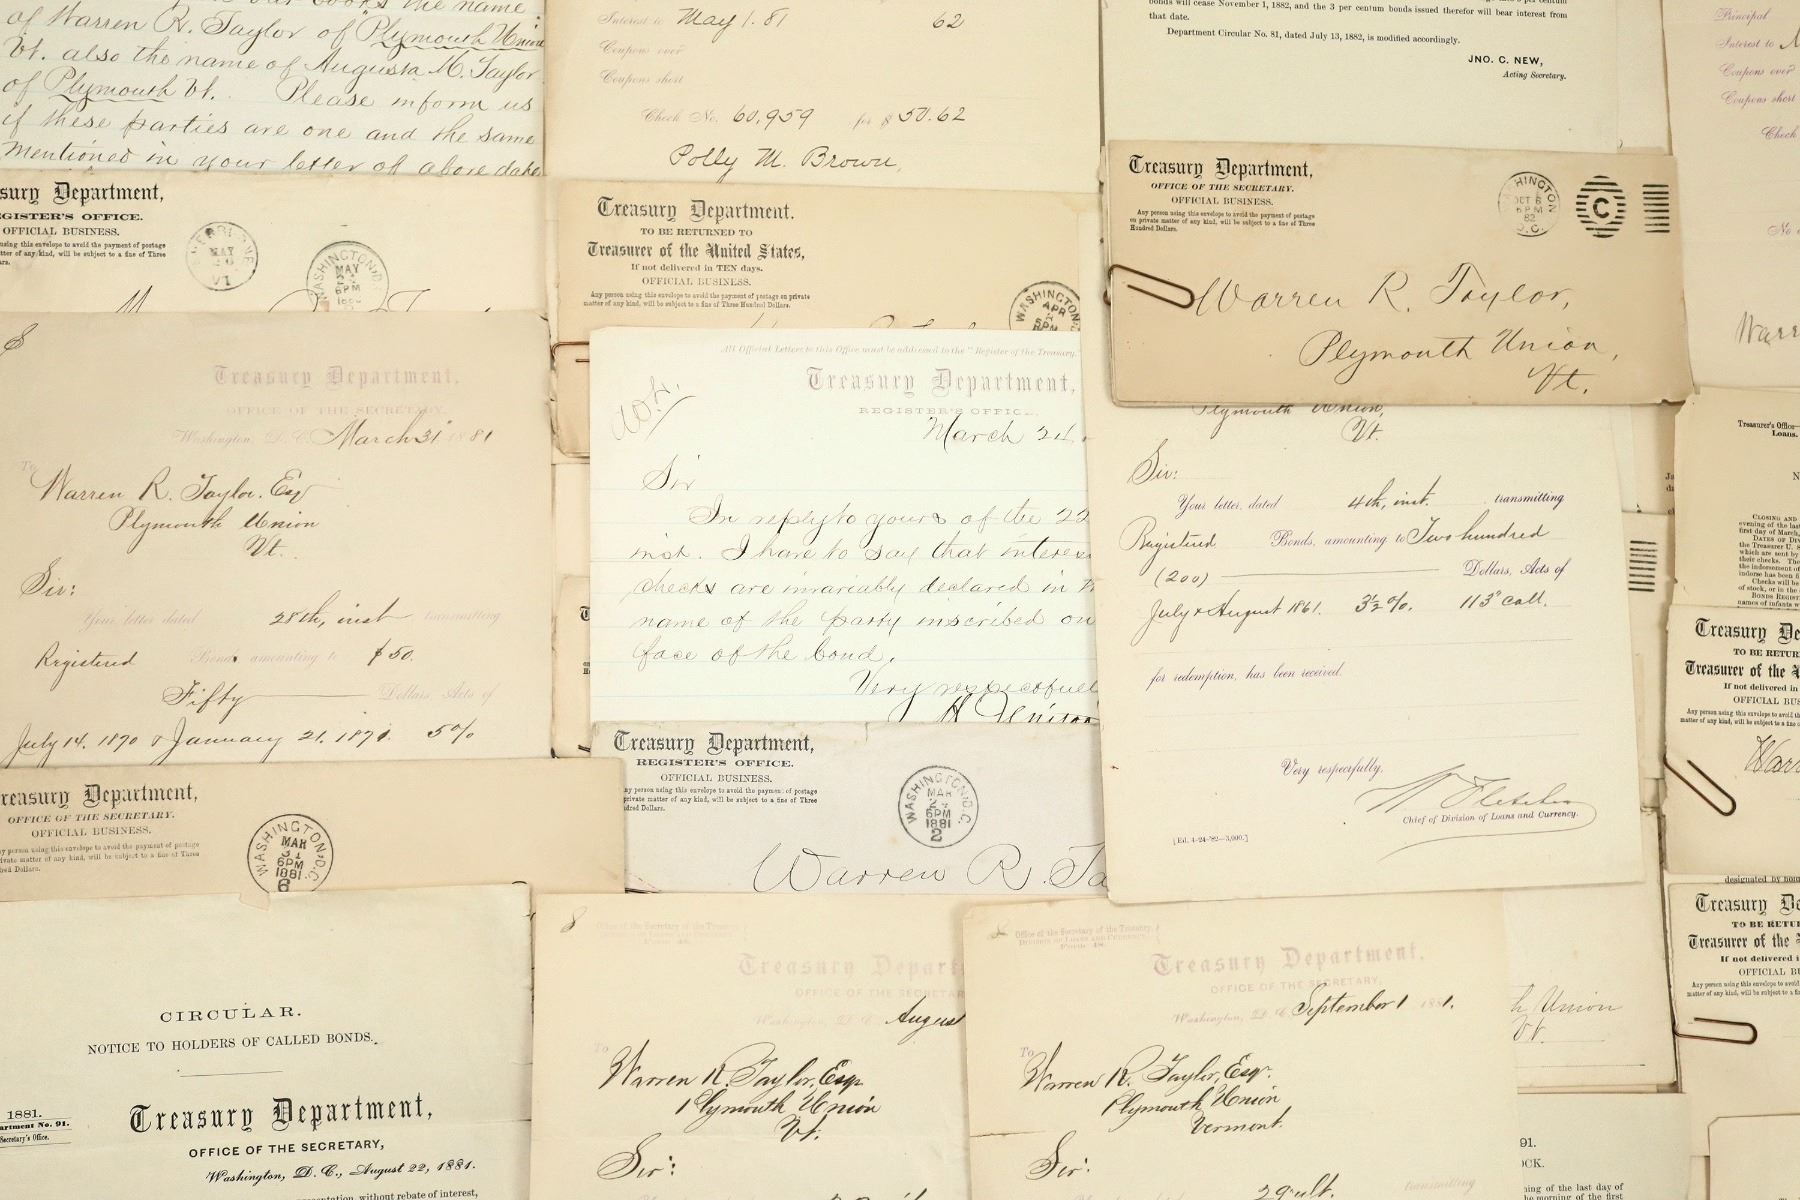 of Warren R. Taylor of Plymouth Union
Vt. also the name of Augusta M. Taylor
of Plymouth Vt. Please inform us
if these parties are one and the same
mentioned in your letter of above date
Interest to May 1. 81 62
Coupons over
Coupons short
Check No. 60,959 for $50.62
Polly M. Brown,
bonds will cease November 1, 1882, and the 3 per centum bonds issued therefor will bear interest from
that date.
Department Circular No. 81, dated July 13, 1882, is modified accordingly.
JNO. C. NEW,
Acting Secretary.
Principal
Interest to
Coupons over
Coupons short
Check
Department,
OFFICIAL BUSINESS.
using this envelope to avoid the payment of postage
matter of any kind, will be subject to a fine of Three
MAY
VT
WASHINGTON D.C.
MAY
6PM
Treasury Department.
TO BE RETURNED TO
Treasurer of the United States,
If not delivered in TEN days.
OFFICIAL BUSINESS.
Any person using this envelope to avoid the payment of postage on private
matter of any kind, will be subject to a fine of Three Hundred Dollars.
WASHINGTON
APR
Treasury Department,
OFFICE OF THE SECRETARY.
OFFICIAL BUSINESS.
Any person using this envelope to avoid the payment of postage
on private matter of any kind, will be subject to a fine of Three
Hundred Dollars.
WASHINGTON
OCT 6
6 PM
82
D.C.
C
Warren R. Taylor,
Plymouth Union,
Vt.
Treasury Department,
OFFICE OF THE SECRETARY,
Washington, D. C. March 31 1881
To
Warren R. Taylor. Esq
Plymouth Union
Vt.
Sir:
Your letter dated 28th, inst transmitting
Registered Bonds amounting to $50.
Fifty Dollars, Acts of
July 14. 1870 & January 21. 1871. 5%
All Official Letters to this Office must be addressed to the "Register of the Treasury."
Treasury Department,
REGISTER'S OFFICE.
March 24,
Sir
In reply to yours of the 22
inst. I have to say that interest
checks are invariably declared in
name of the party inscribed on
face of the bond.
Very respectfull
Plymouth Union,
Vt.
Sir:
Your letter, dated 4th, inst. transmitting
Registered Bonds, amounting to Two hundred
(200) Dollars, Acts of
July & August 1861. 3½%. 113" call.
for redemption, has been received.
Very respectfully,
Chief of Division of Loans and Currency.
[Ed. 4-24-'82—3,000.]
Treasurer's Office—
Loans.
Treasury De
TO BE RETUR
Treasurer of the
If not delivered in
OFFICIAL BU
Treasury Department,
OFFICE OF THE SECRETARY.
OFFICIAL BUSINESS.
WASHINGTON, D.C.
MAR
31
6PM
1881
6
Treasury Department,
REGISTER'S OFFICE.
OFFICIAL BUSINESS.
ny person using this envelope to avoid the payment of postage
private matter of any kind, will be subject to a fine of Three
dred Dollars.
WASHINGTON, D.C.
MAR
24
6PM
1881
2
Warren R. Ta
Treasury De
TO BE RETUR
Treasurer of the
If not delivered i
OFFICIAL BU
CIRCULAR.
NOTICE TO HOLDERS OF CALLED BONDS.
1881.
artment No. 91.
Secretary's Office.
Treasury Department,
OFFICE OF THE SECRETARY,
Washington, D. C., August 22, 1881.
presentation, without rebate of interest,
Office of the Secretary of the Treasury,
DIVISION OF LOANS AND CURRENCY.
Treasury Depart
OFFICE OF THE SECRETAR
Washington, D. C. August
To
Warren R. Taylor, Esq.
Plymouth Union
Vt.
Sir:
Office of the Secretary of the Treasury,
DIVISION OF LOANS AND CURRENCY.
Treasury Department,
OFFICE OF THE SECRETARY,
Washington, D. C. September 1 1881.
To
Warren R. Taylor, Esq.
Plymouth Union
Vermont.
Sir:
29" ult. transmitting
h Union
Vt.
91.
OCK.
ning of the last day of
he morning of the first